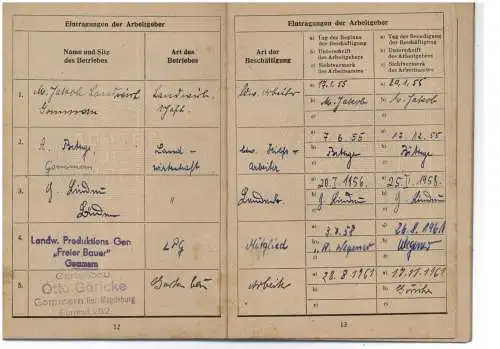 Eintragungen der Arbeitgeber
Name und Sitz
des Betriebes
Art des
Betriebes
1.
M. Jakob Landwirt
Gommern
Landwirt-
schaft
2.
Gommern
Land-
wirtschaft
3.
G. Lindau
"
4.
Landw. Produktions Gen
„Freier Bauer"
Gommern
LPG
5.
Gartenbau
Otto Göricke
Gommern Bez. Magdeburg
Fernruf 202
Gartenbau
12
Eintragungen der Arbeitgeber
Art der
Beschäftigung
a) Tag des Beginns
der Beschäftigung
b) Unterschrift
des Arbeitgebers
c) Sichtvermerk
des Arbeitsamtes
a) Tag der Beendigung
der Beschäftigung
b) Unterschrift
des Arbeitgebers
c) Sichtvermerk
des Arbeitsamtes
ldw. Arbeiter
a) 17.1.55
b) M. Jakob
c)
a) 20.1.55
b) M. Jakob
c)
arbeiter
a) 7.6.55
b)
c)
a) 17.12.55
b)
c)
Landarb.
a) 20.I.1956.
b) G. Lindau
c)
a) 25.I.1958.
b) G. Lindau
c)
Mitglied
a) 3.2.58
b) A. Wegener
c)
a) 26.8.1961
b) Wegener
c)
Arbeiter
a) 28.8.1961
b)
c)
a) 17.11.1961
b) Göricke
c)
13